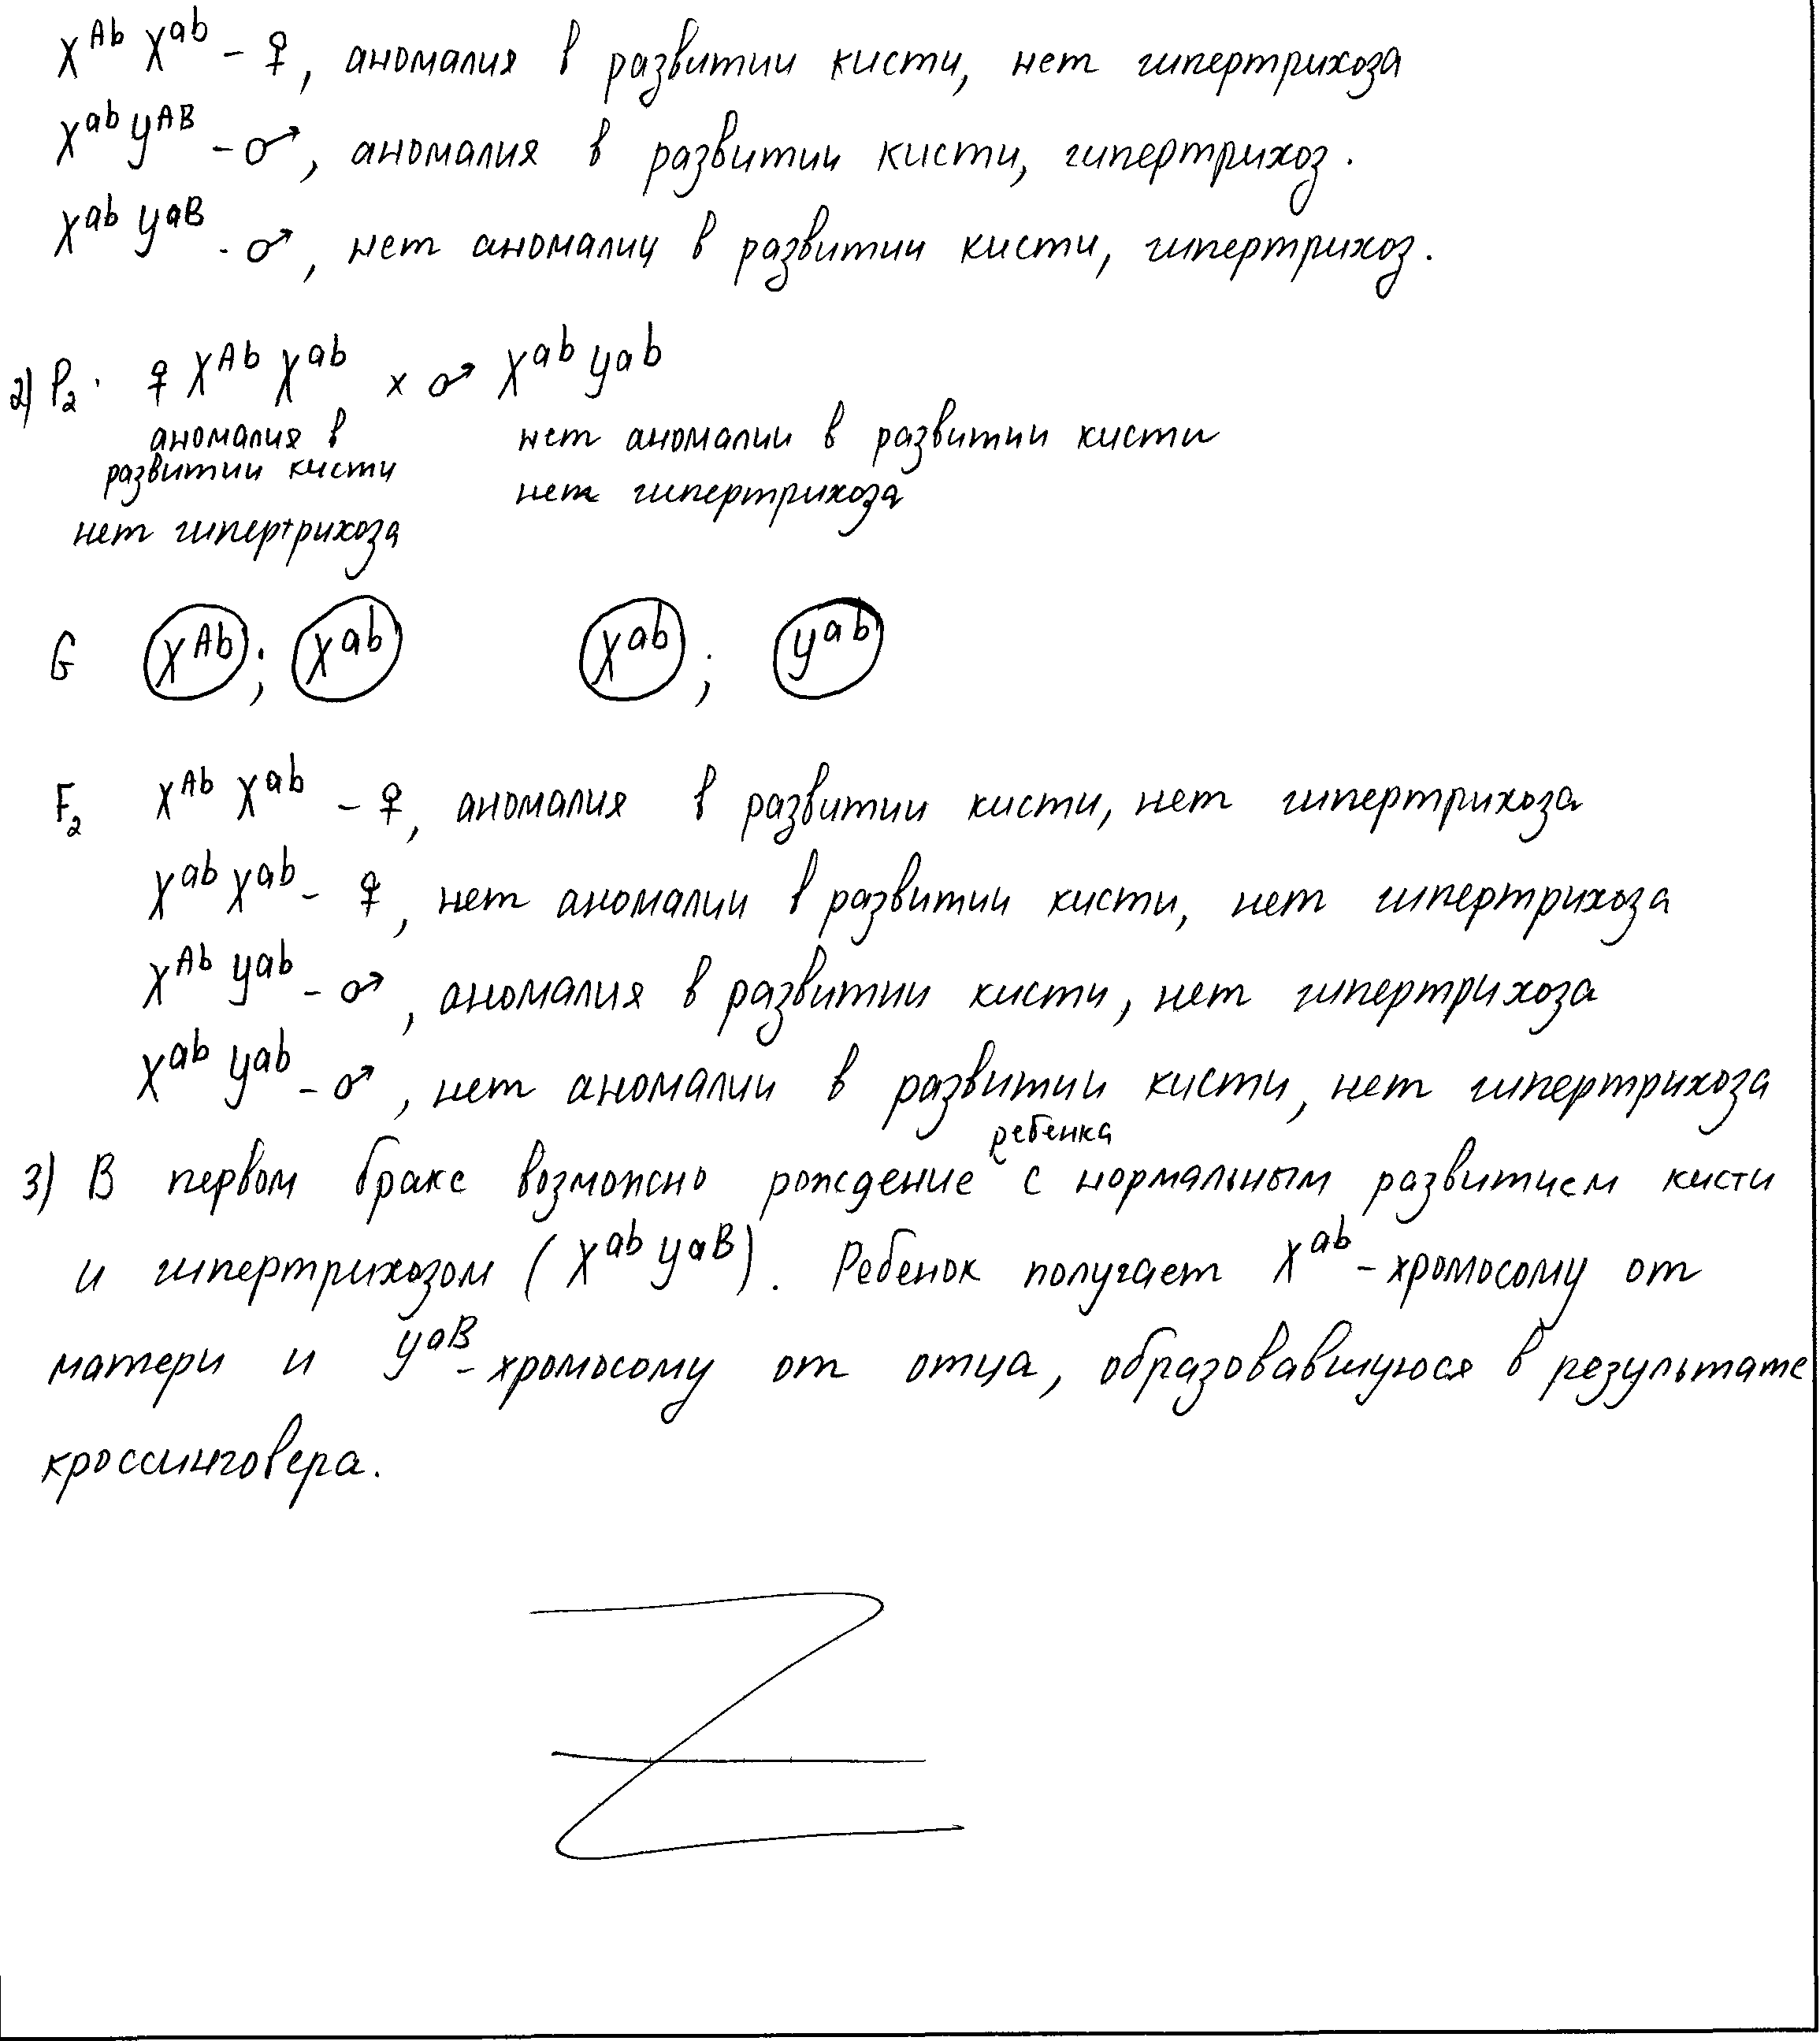 X^Ab X^ab - ♀, аномалия в развитии кисти, нет гипертрихоза
X^ab y^AB - ♂, аномалия в развитии кисти, гипертрихоз.
X^ab y^aB - ♂, нет аномалии в развитии кисти, гипертрихоз.
2) P₂: ♀ X^Ab X^ab × ♂ X^ab y^ab
аномалия в развитии кисти нет аномалии в развитии кисти
нет гипертрихоза нет гипертрихоза
G X^Ab; X^ab X^ab; y^ab
F₂ X^Ab X^ab - ♀, аномалия в развитии кисти, нет гипертрихоза
X^ab X^ab - ♀, нет аномалии в развитии кисти, нет гипертрихоза
X^Ab y^ab - ♂, аномалия в развитии кисти, нет гипертрихоза
X^ab y^ab - ♂, нет аномалии в развитии кисти, нет гипертрихоза
3) В первом браке возможно рождение ребенка с нормальным развитием кисти
и гипертрихозом (X^ab y^aB). Ребенок получает X^ab - хромосому от
матери и y^aB - хромосому от отца, образовавшуюся в результате
кроссинговера.